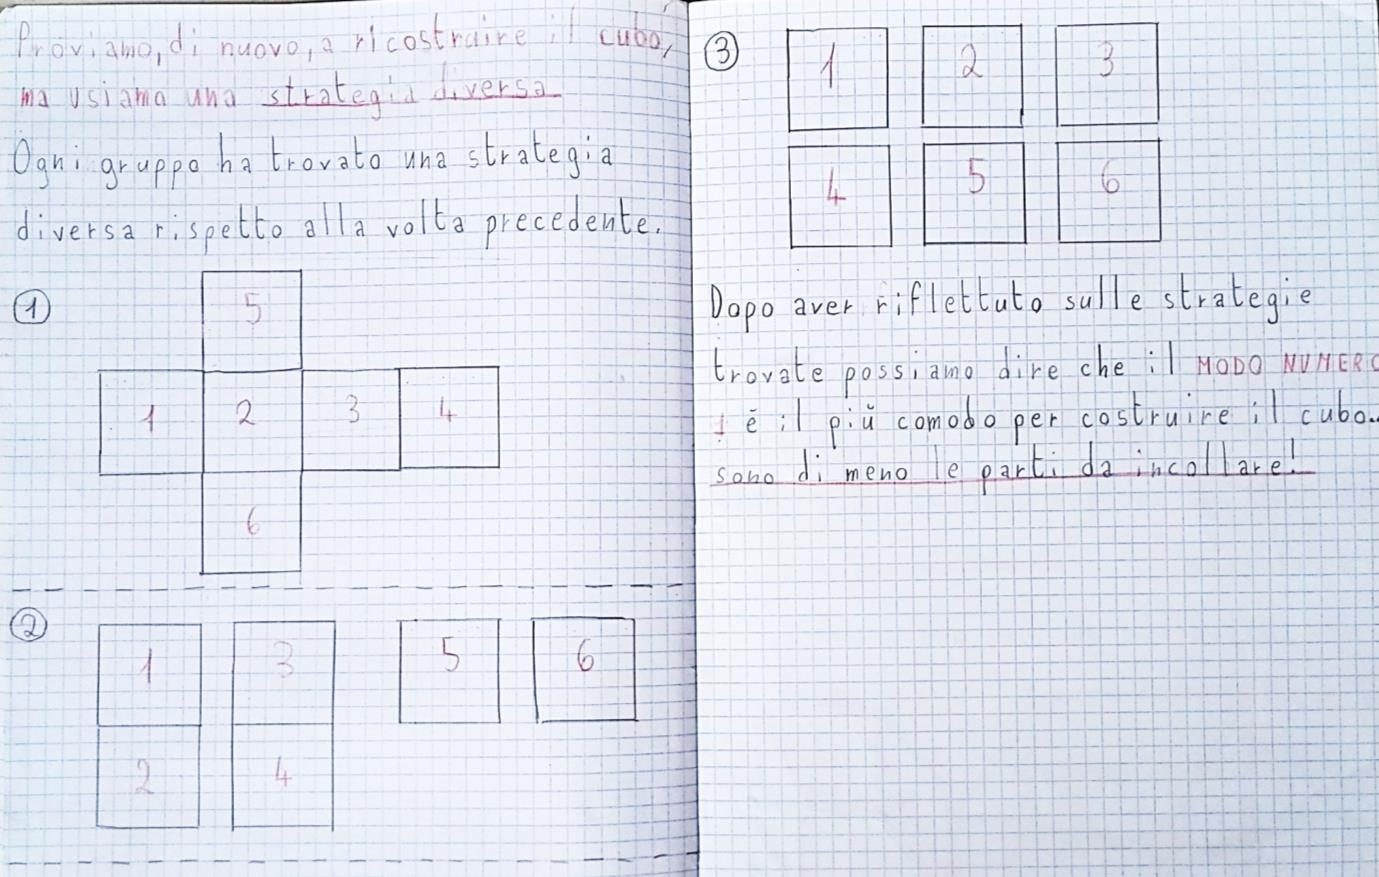 Proviamo, di nuovo, a ricostruire il cubo,
ma usiamo una strategia diversa
Ogni gruppo ha trovato una strategia
diversa rispetto alla volta precedente.
1
5
1 2 3 4
6
2
1 3 5 6
2 4
3
1 2 3
4 5 6
Dopo aver riflettuto sulle strategie
trovate possiamo dire che il MODO NUMERO
1 è il più comodo per costruire il cubo..
sono di meno le parti da incollare!